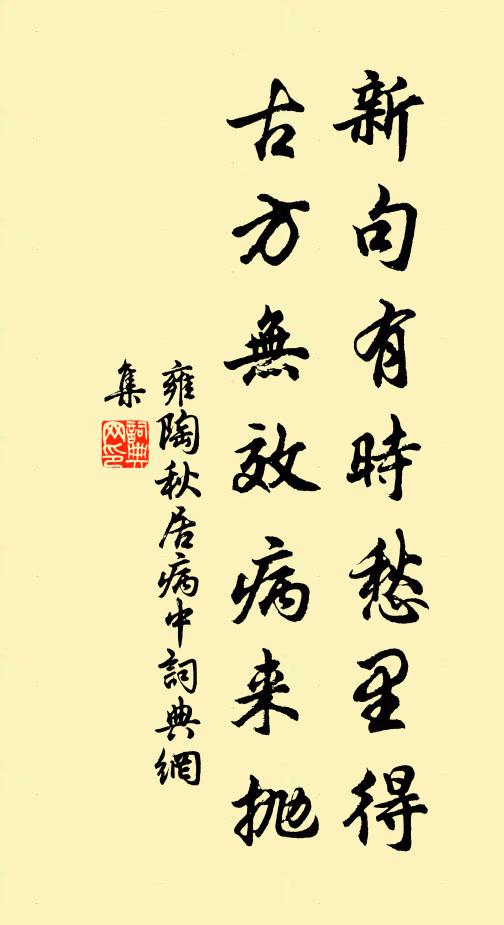 新句有時愁里得
古方無效病来抛
雍陶秋居病中詞典網
集
詞典
网印